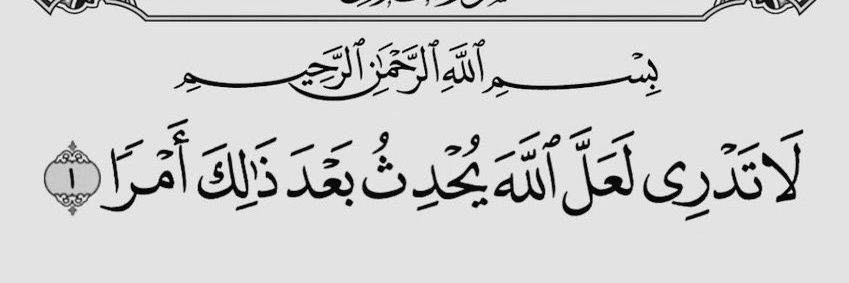 بِسْمِ ٱللَّهِ ٱلرَّحْمَٰنِ ٱلرَّحِيمِ
لَا تَدْرِى لَعَلَّ ٱللَّهَ يُحْدِثُ بَعْدَ ذَٰلِكَ أَمْرًا ١